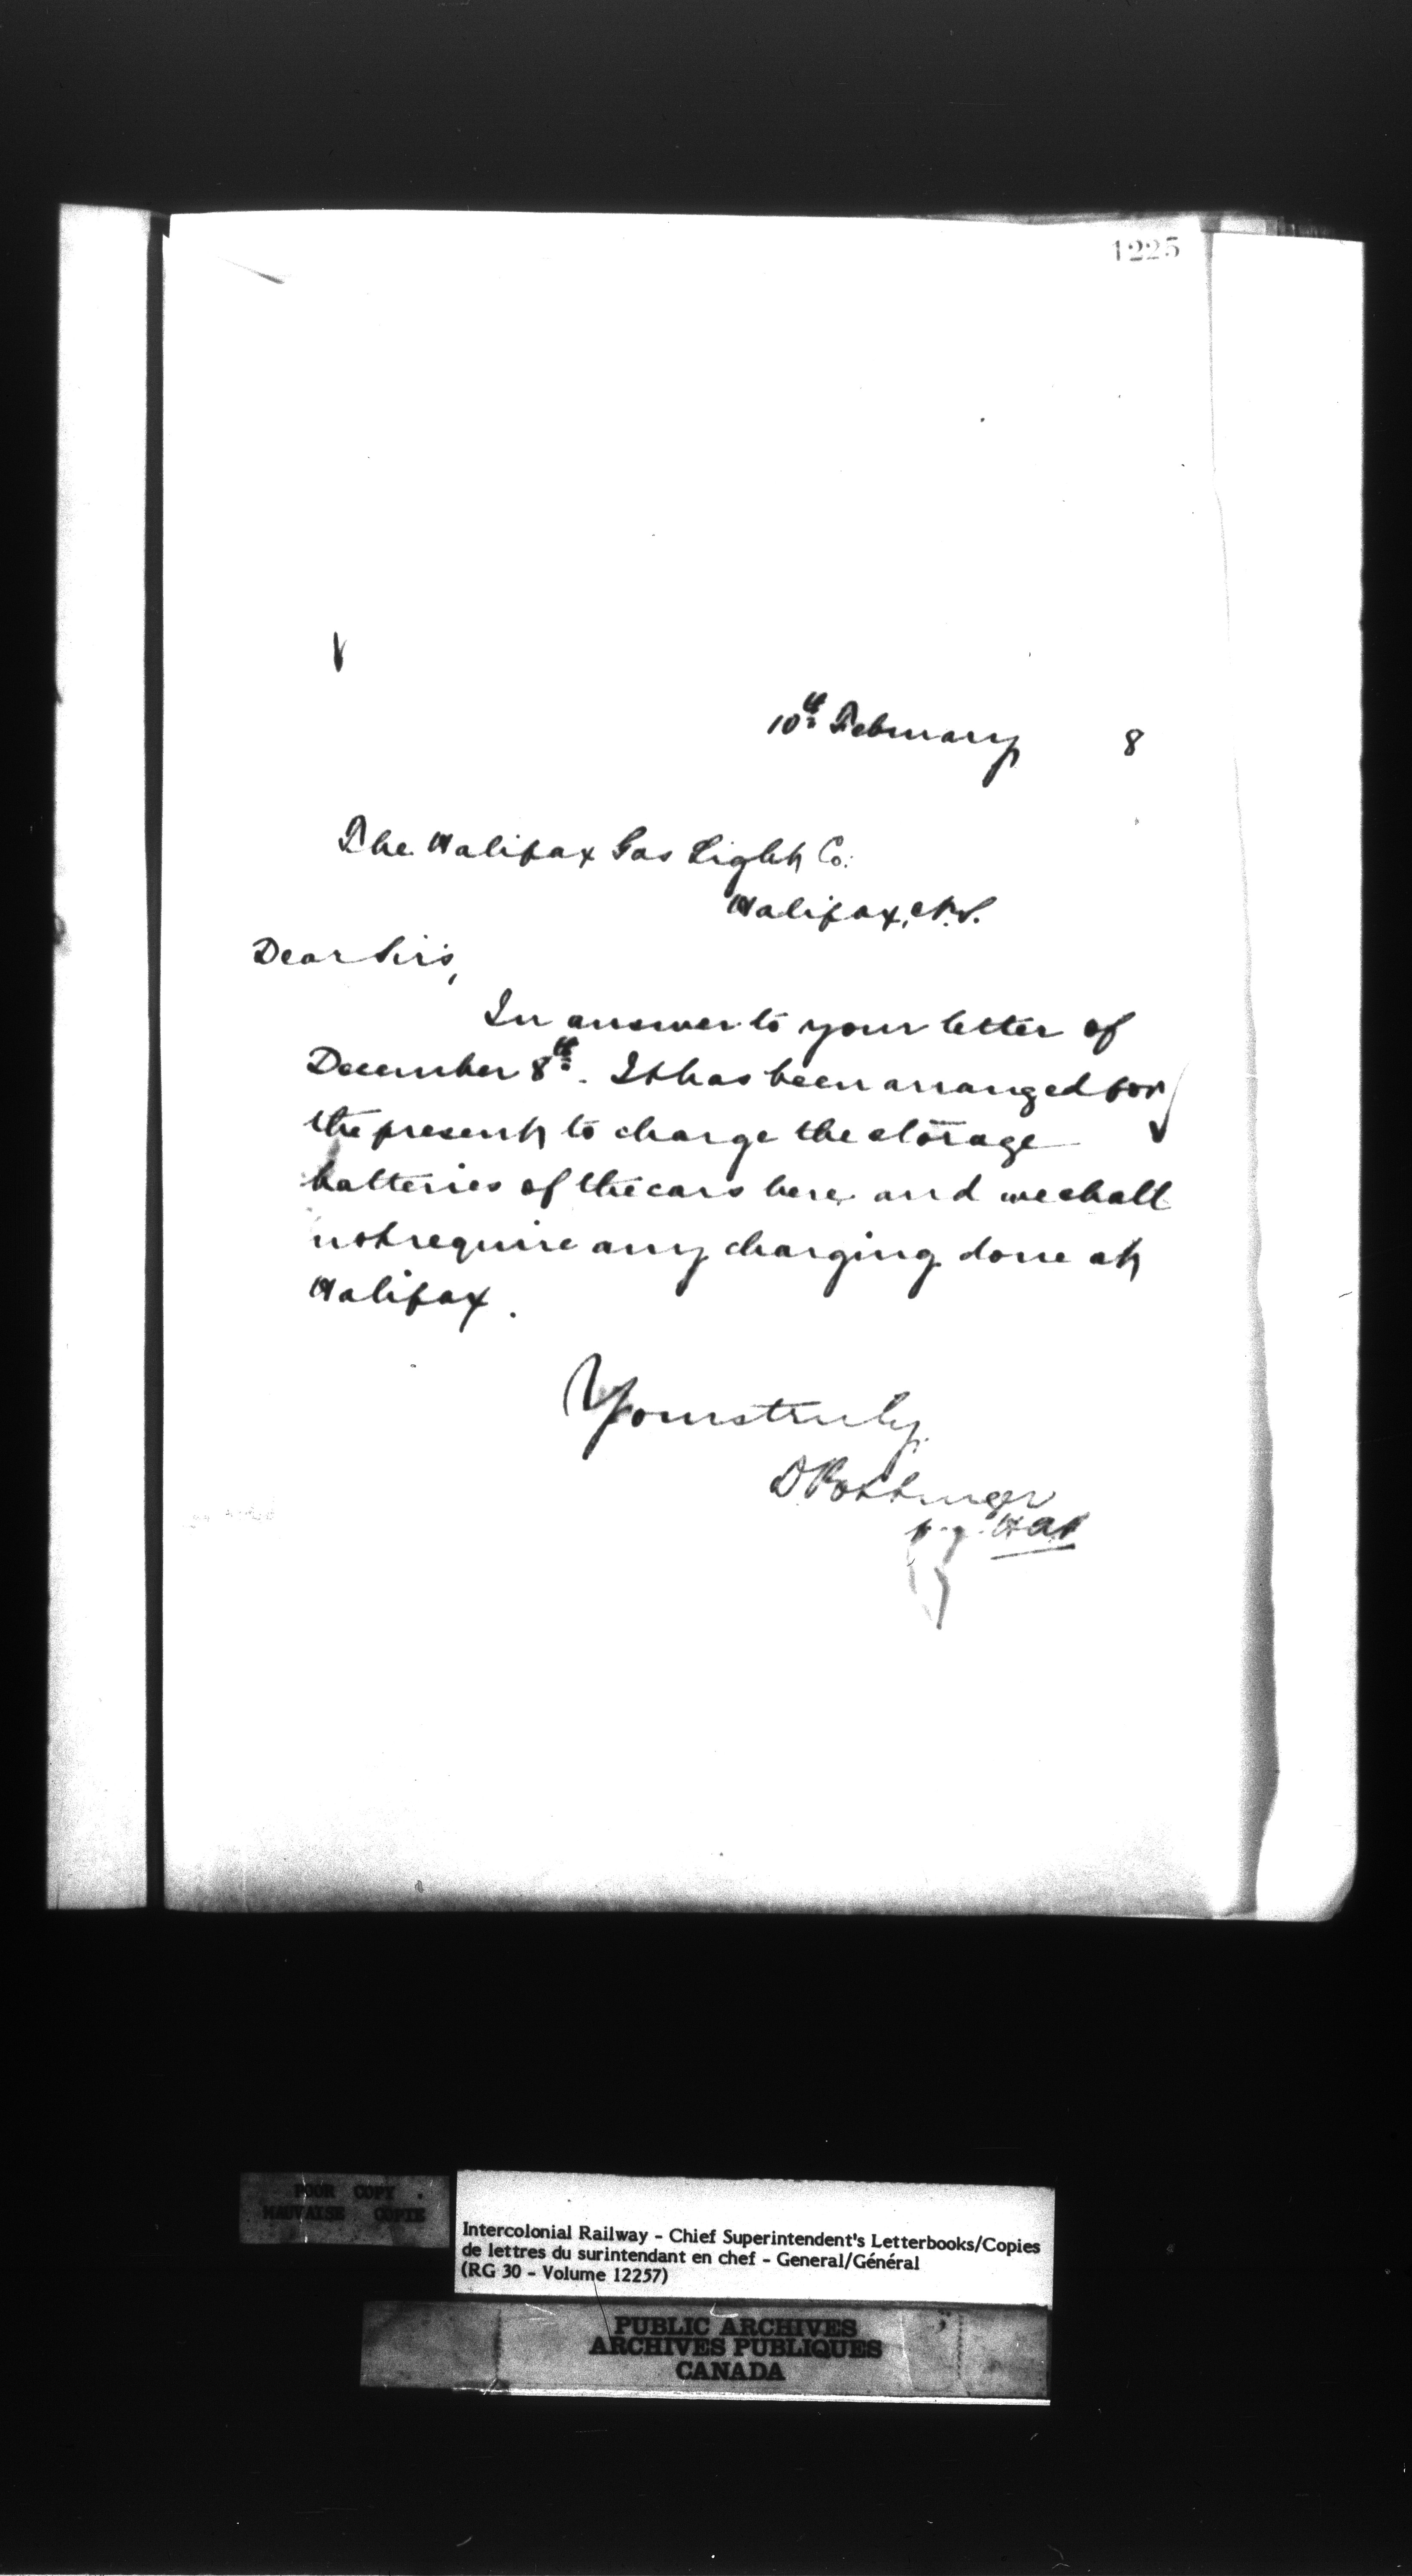 1225
10th February 8
The Halifax Gas Light Co:
Halifax, N.S.
Dear Sirs,
In answer to your letter of
December 8th. It has been arranged for
the present to charge the storage
batteries of the cars here and we shall
not require any charging done at
Halifax.
Yours truly
D Pottinger
POOR COPY
MAUVAISE COPIE
Intercolonial Railway - Chief Superintendent's Letterbooks/Copies
de lettres du surintendant en chef - General/Général
(RG 30 - Volume 12257)
PUBLIC ARCHIVES
ARCHIVES PUBLIQUES
CANADA